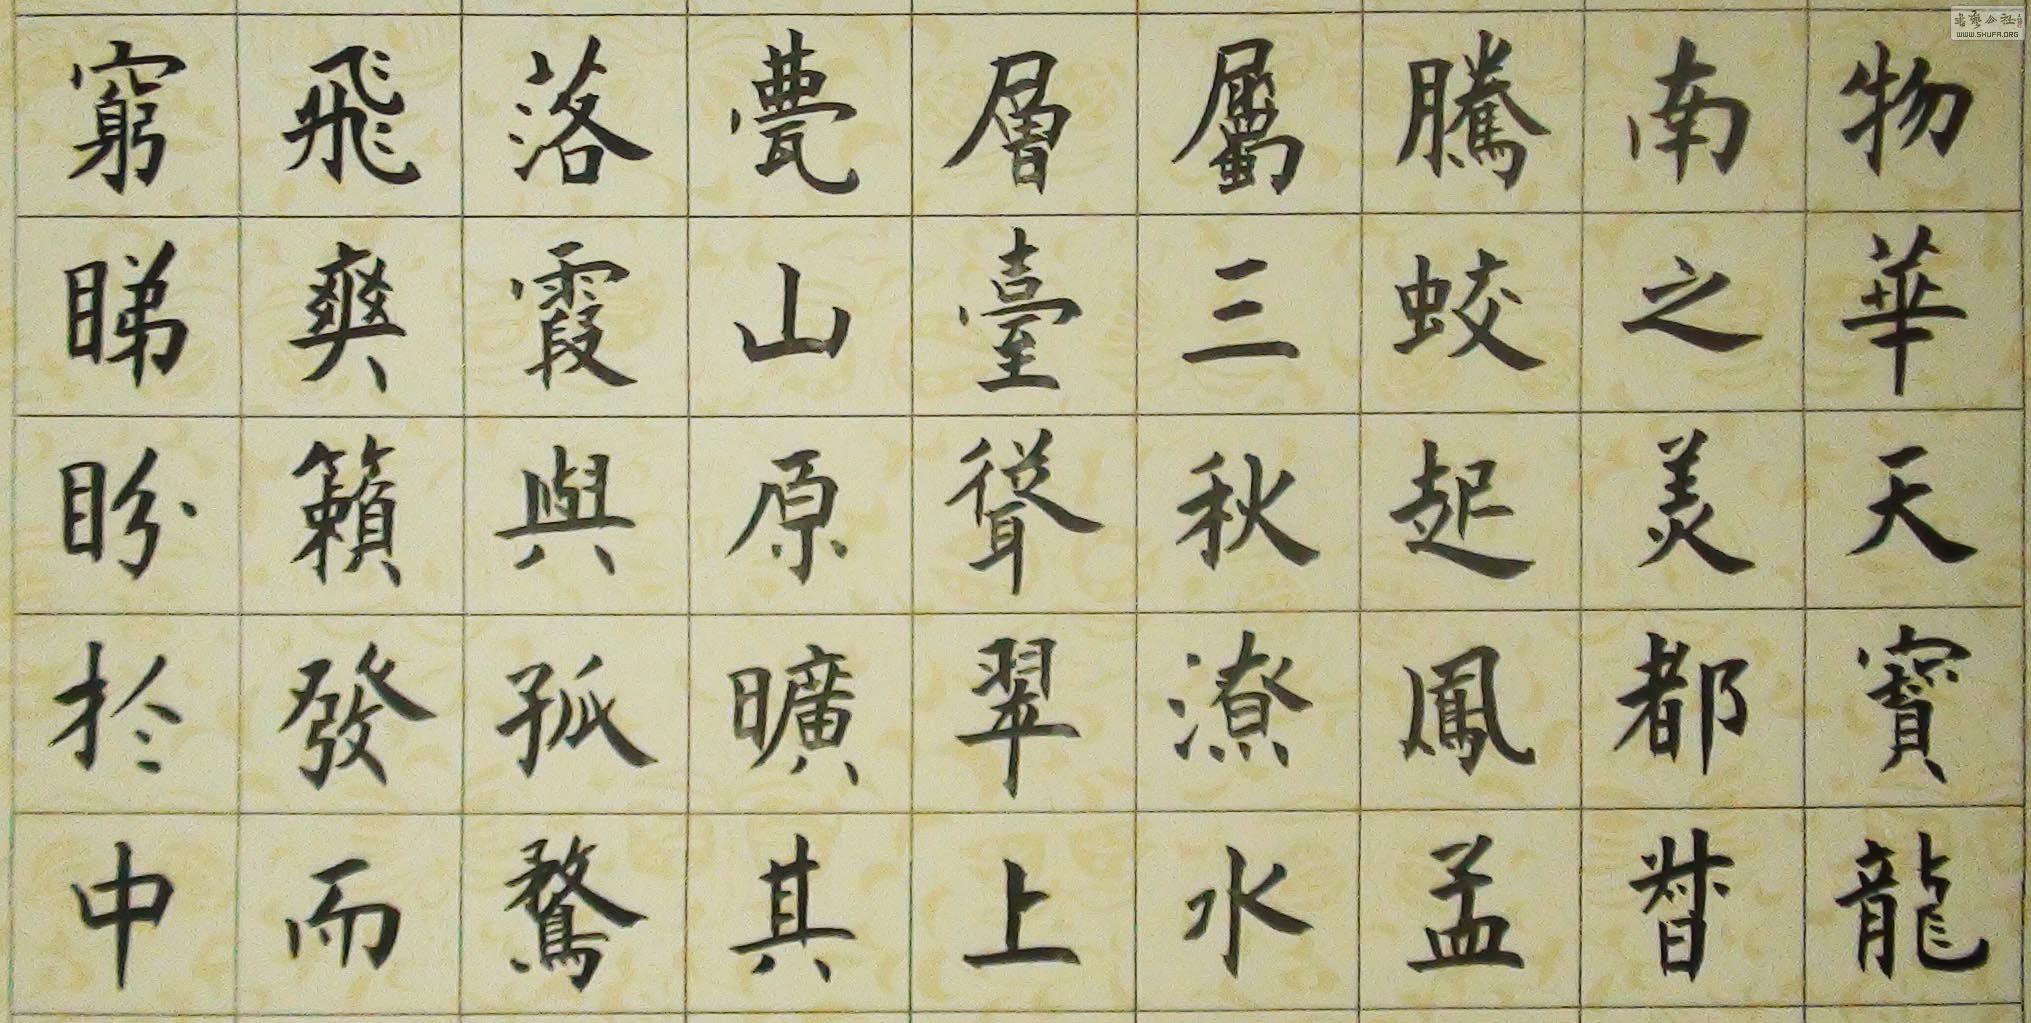 物華天寶龍
南之美都督
騰蛟起鳳孟
屬三秋潦水
層臺聳翠上
甍山原曠其
落霞與孤鶩
飛爽籟發而
窮睇盼於中
WWW.SHUFA.ORG